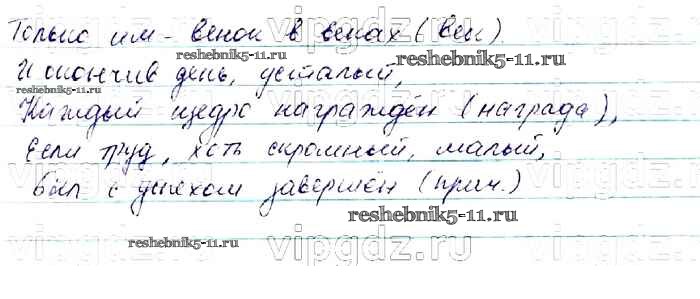 Только им - венок в веках (век).
reshebnik5-11.ru
reshebnik5-11.ru
И окончив день, усталый,
reshebnik5-11.ru
Каждый щедро награждён (награда),
Если труд, хоть скромный, малый,
Был с успехом завершён (прич.)
reshebnik5-11.ru
reshebnik5-11.ru
vipgdz.ru
vipgdz.ru
vipgdz.ru